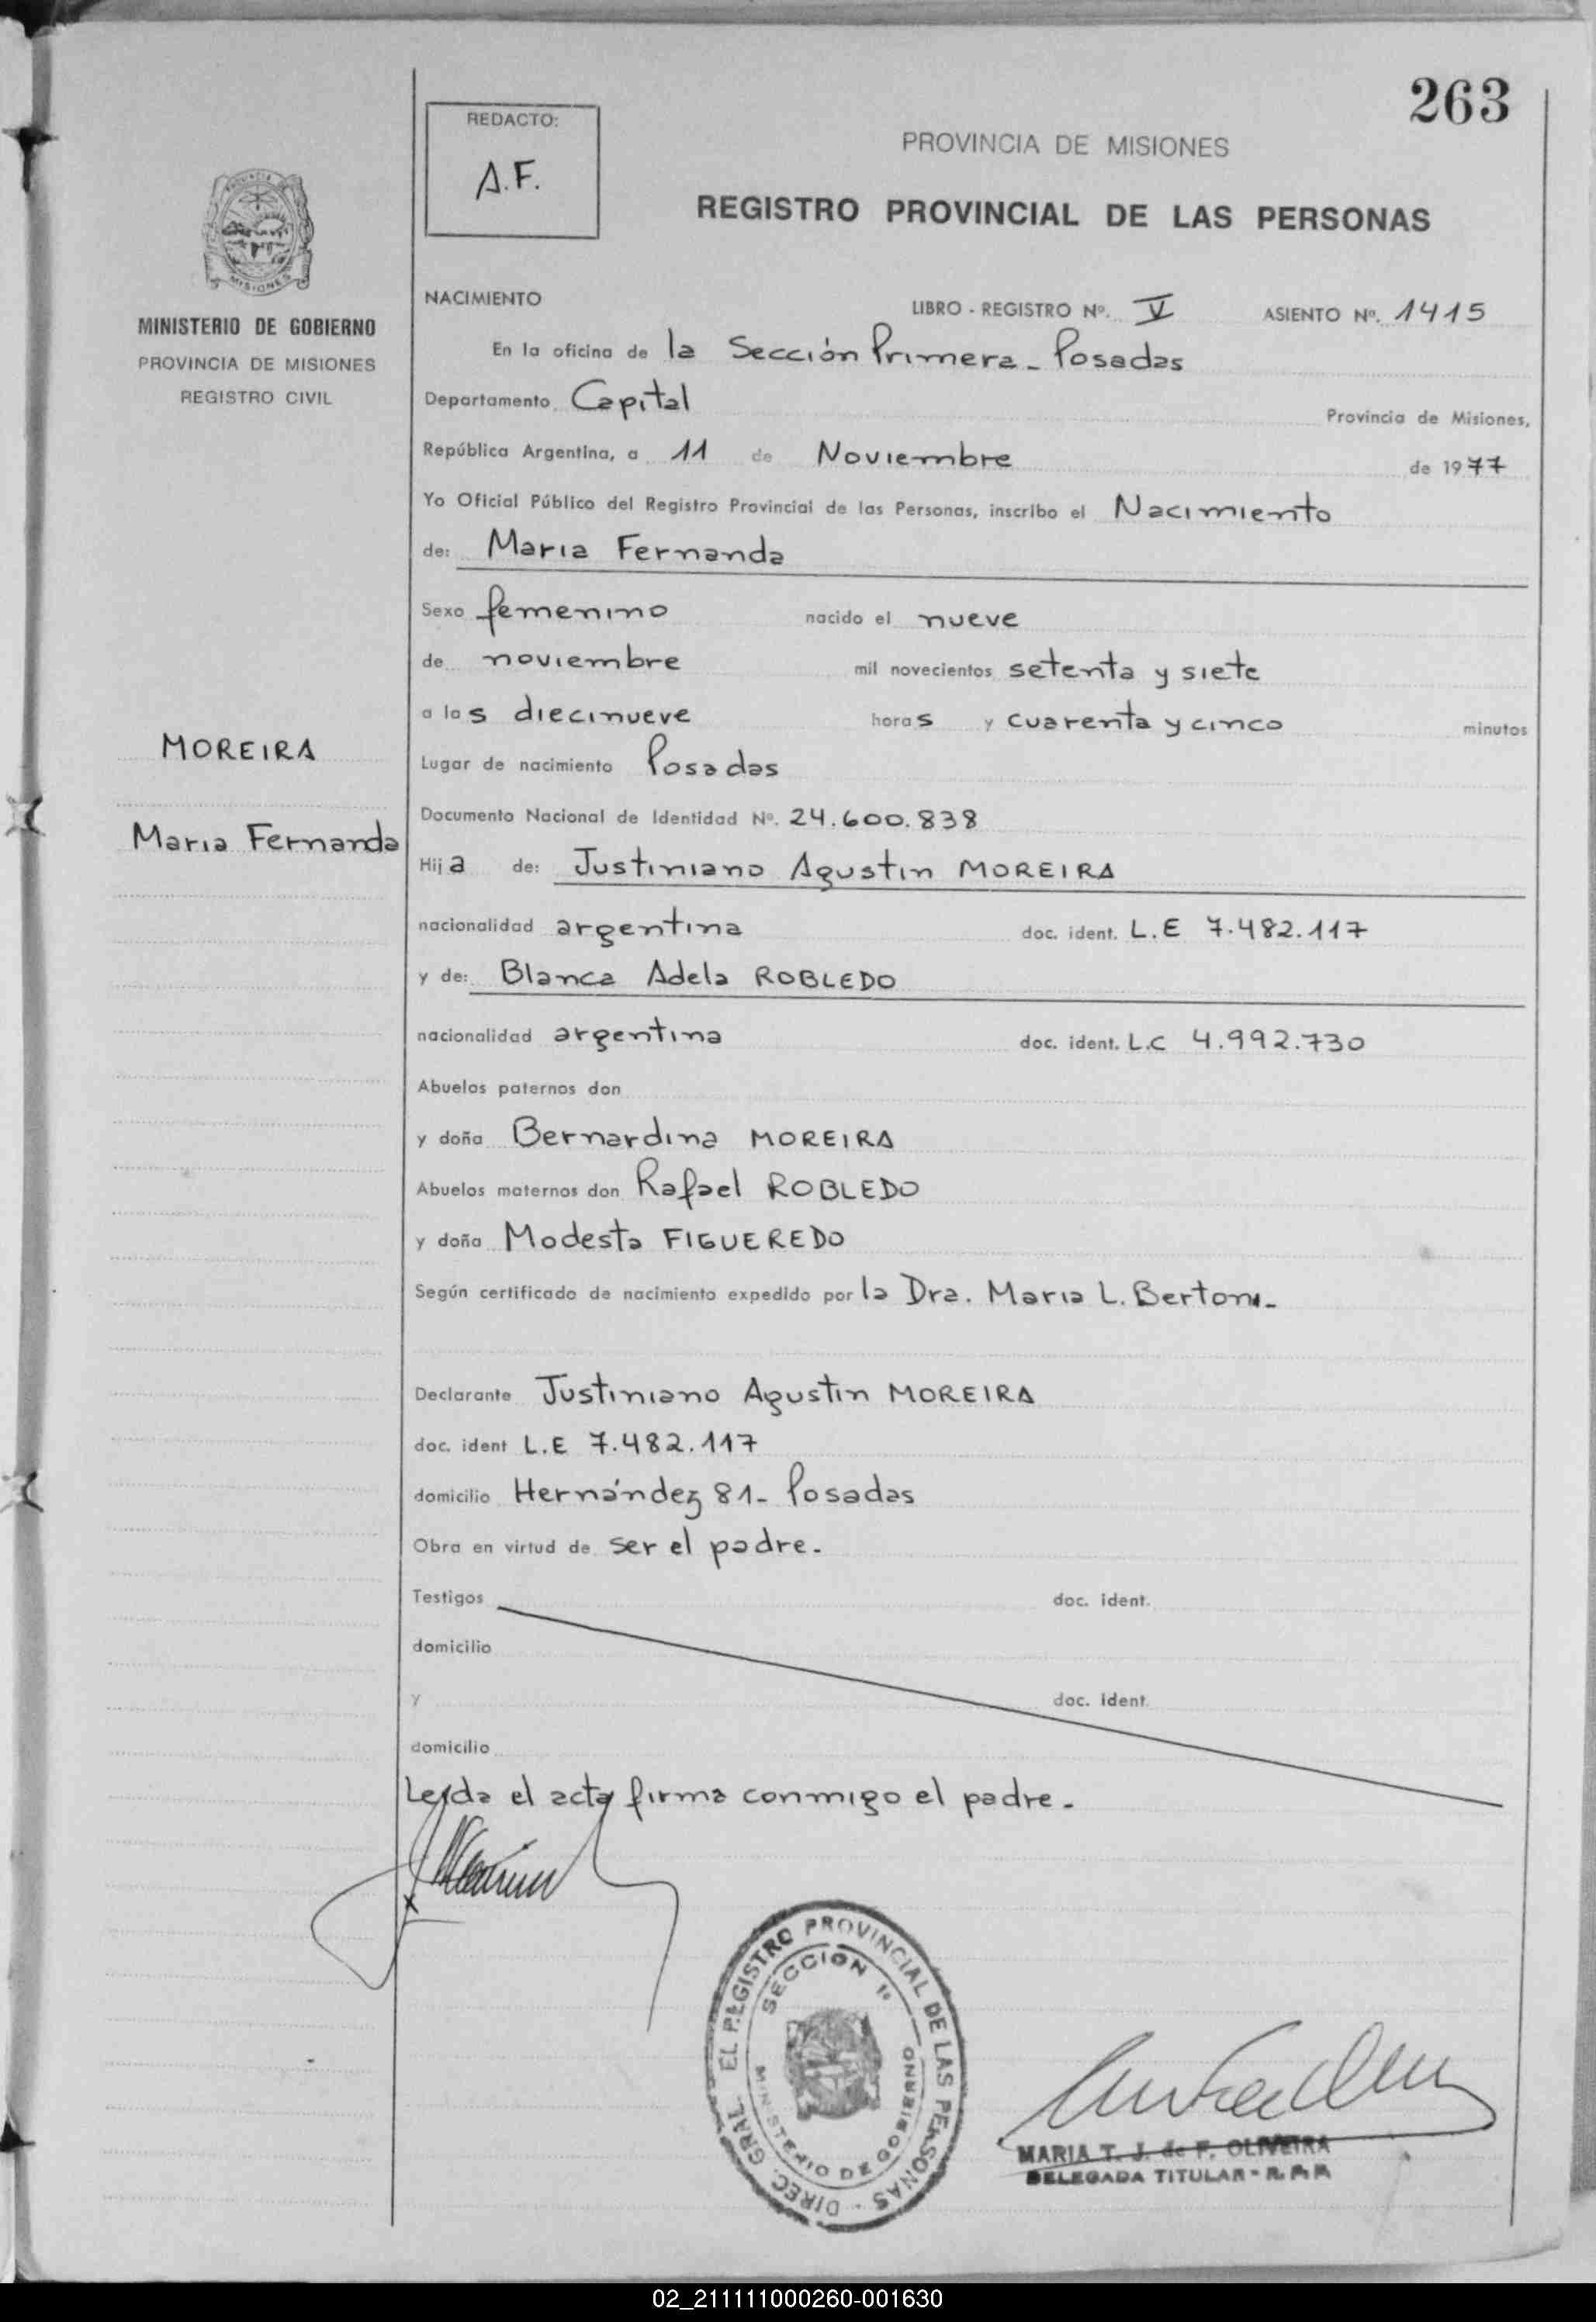 263
REDACTO:
A.F.
PROVINCIA DE MISIONES
REGISTRO PROVINCIAL DE LAS PERSONAS
MISIONES
MINISTERIO DE GOBIERNO
PROVINCIA DE MISIONES
REGISTRO CIVIL
NACIMIENTO LIBRO - REGISTRO Nº. V ASIENTO Nº. 1415
En la oficina de la Sección Primera - Posadas
Departamento Capital Provincia de Misiones,
República Argentina, a 11 de Noviembre de 1977
Yo Oficial Público del Registro Provincial de las Personas, inscribo el Nacimiento
de: Maria Fernanda
Sexo femenino nacido el nueve
de noviembre mil novecientos setenta y siete
a las diecinueve horas y cuarenta y cinco minutos
MOREIRA
Maria Fernanda
Lugar de nacimiento Posadas
Documento Nacional de Identidad Nº. 24.600.838
Hija de: Justiniano Agustin MOREIRA
nacionalidad argentina doc. ident. L.E 7.482.117
y de: Blanca Adela ROBLEDO
nacionalidad argentina doc. ident. L.C 4.992.730
Abuelos paternos don
y doña Bernardina MOREIRA
Abuelos maternos don Rafael ROBLEDO
y doña Modesta FIGUEREDO
Según certificado de nacimiento expedido por la Dra. Maria L. Bertoni -
Declarante Justiniano Agustin MOREIRA
doc. ident L.E 7.482.117
domicilio Hernández 81 - Posadas
Obra en virtud de ser el padre.
Testigos doc. ident.
domicilio
y doc. ident.
domicilio
Leida el acta firma conmigo el padre.
DIREC. GRAL. EL REGISTRO PROVINCIAL DE LAS PERSONAS -
SECCION 1ª
MINISTERIO DE GOBIERNO
MARIA T. J. de F. OLIVEIRA
DELEGADA TITULAR - R.P.P.
02_211111000260-001630